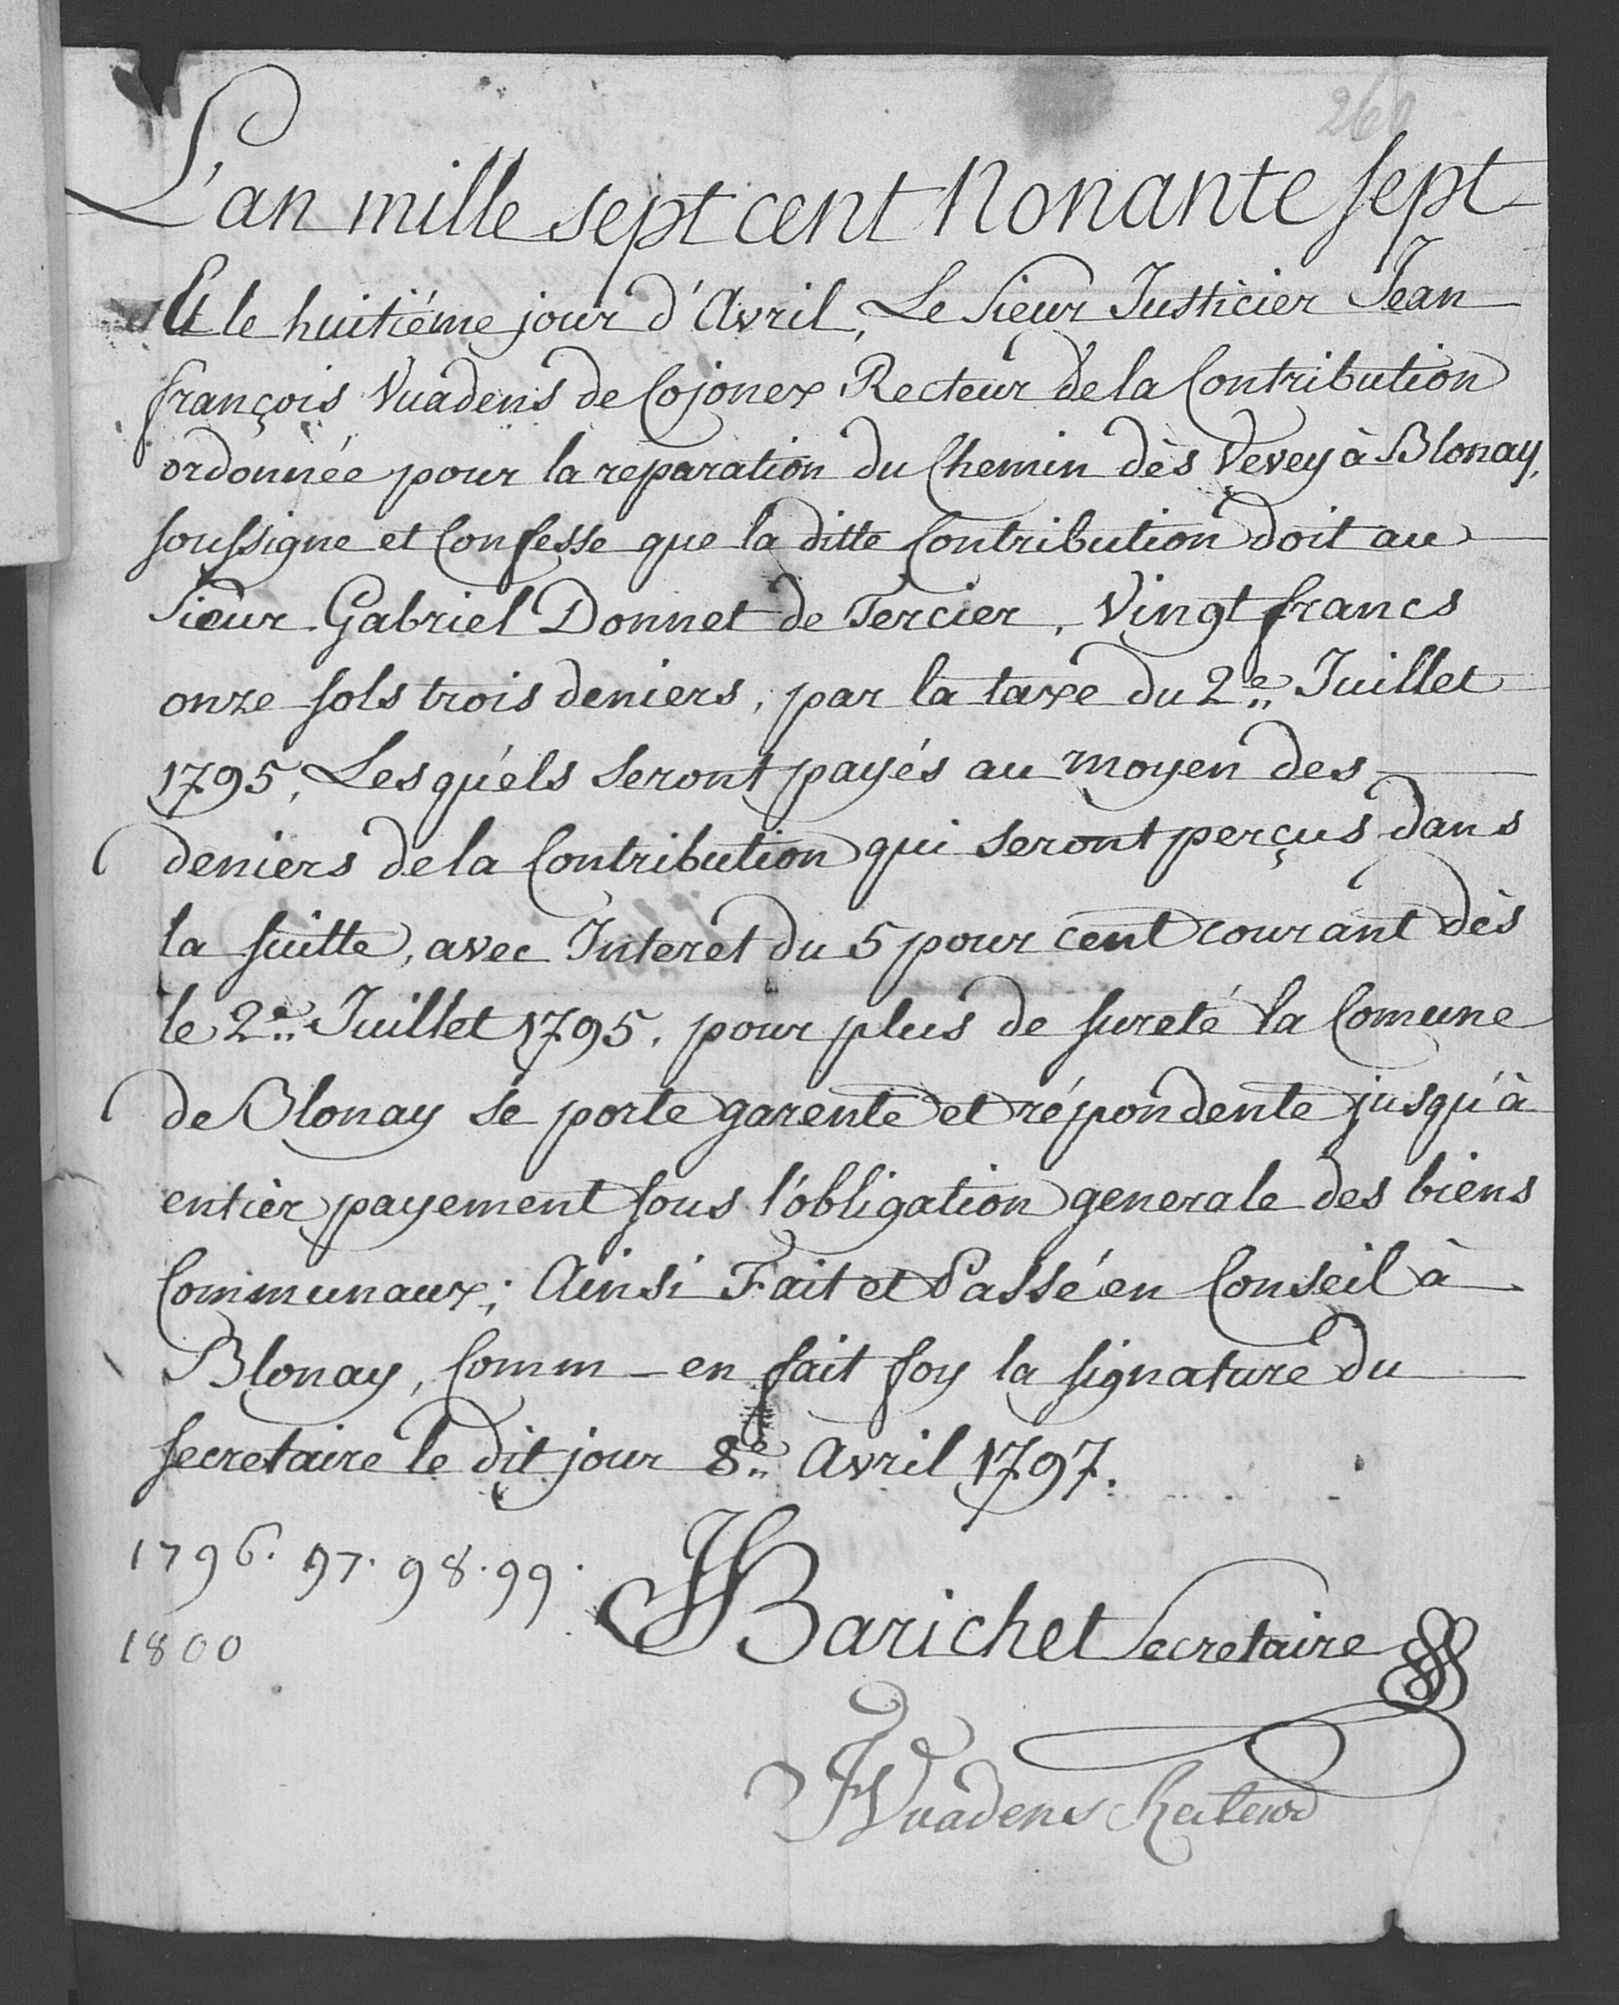 260
L'an mille sept cent Nonante sept
Et le huitiéme jour d'Avril, Le Sieur Justicier Jean
françois Vuadens de Cojonex Recteur de la Contribution
ordonnée pour la reparation du Chemin dès Vevey à Blonay,
soussigne et Confesse que la ditte Contribution doit au
Sieur Gabriel Donnet de Tercier, Vingt francs
onze sols trois deniers, par la taxe du 2e. Juillet
1795, Lesquéls Seront payés au moyen des
deniers de la Contribution qui Seront perçus dans
la suitte, avec Interet du 5 pour cent courant dès
le 2e. Juillet 1795. pour plus de sureté la Comune
de Blonay se porte garente et répondente jusqu'à
entièr payement sous l'obligation generale des biens
Communaux; Ainsi Fait et Passé en Conseil à
Blonay, Comm - en fait foy la signature du
secretaire le dit jour 8e. Avril 1797.
1796. 97. 98. 99.
1800
JBarichet Secretaire
JfVuadens Recteur